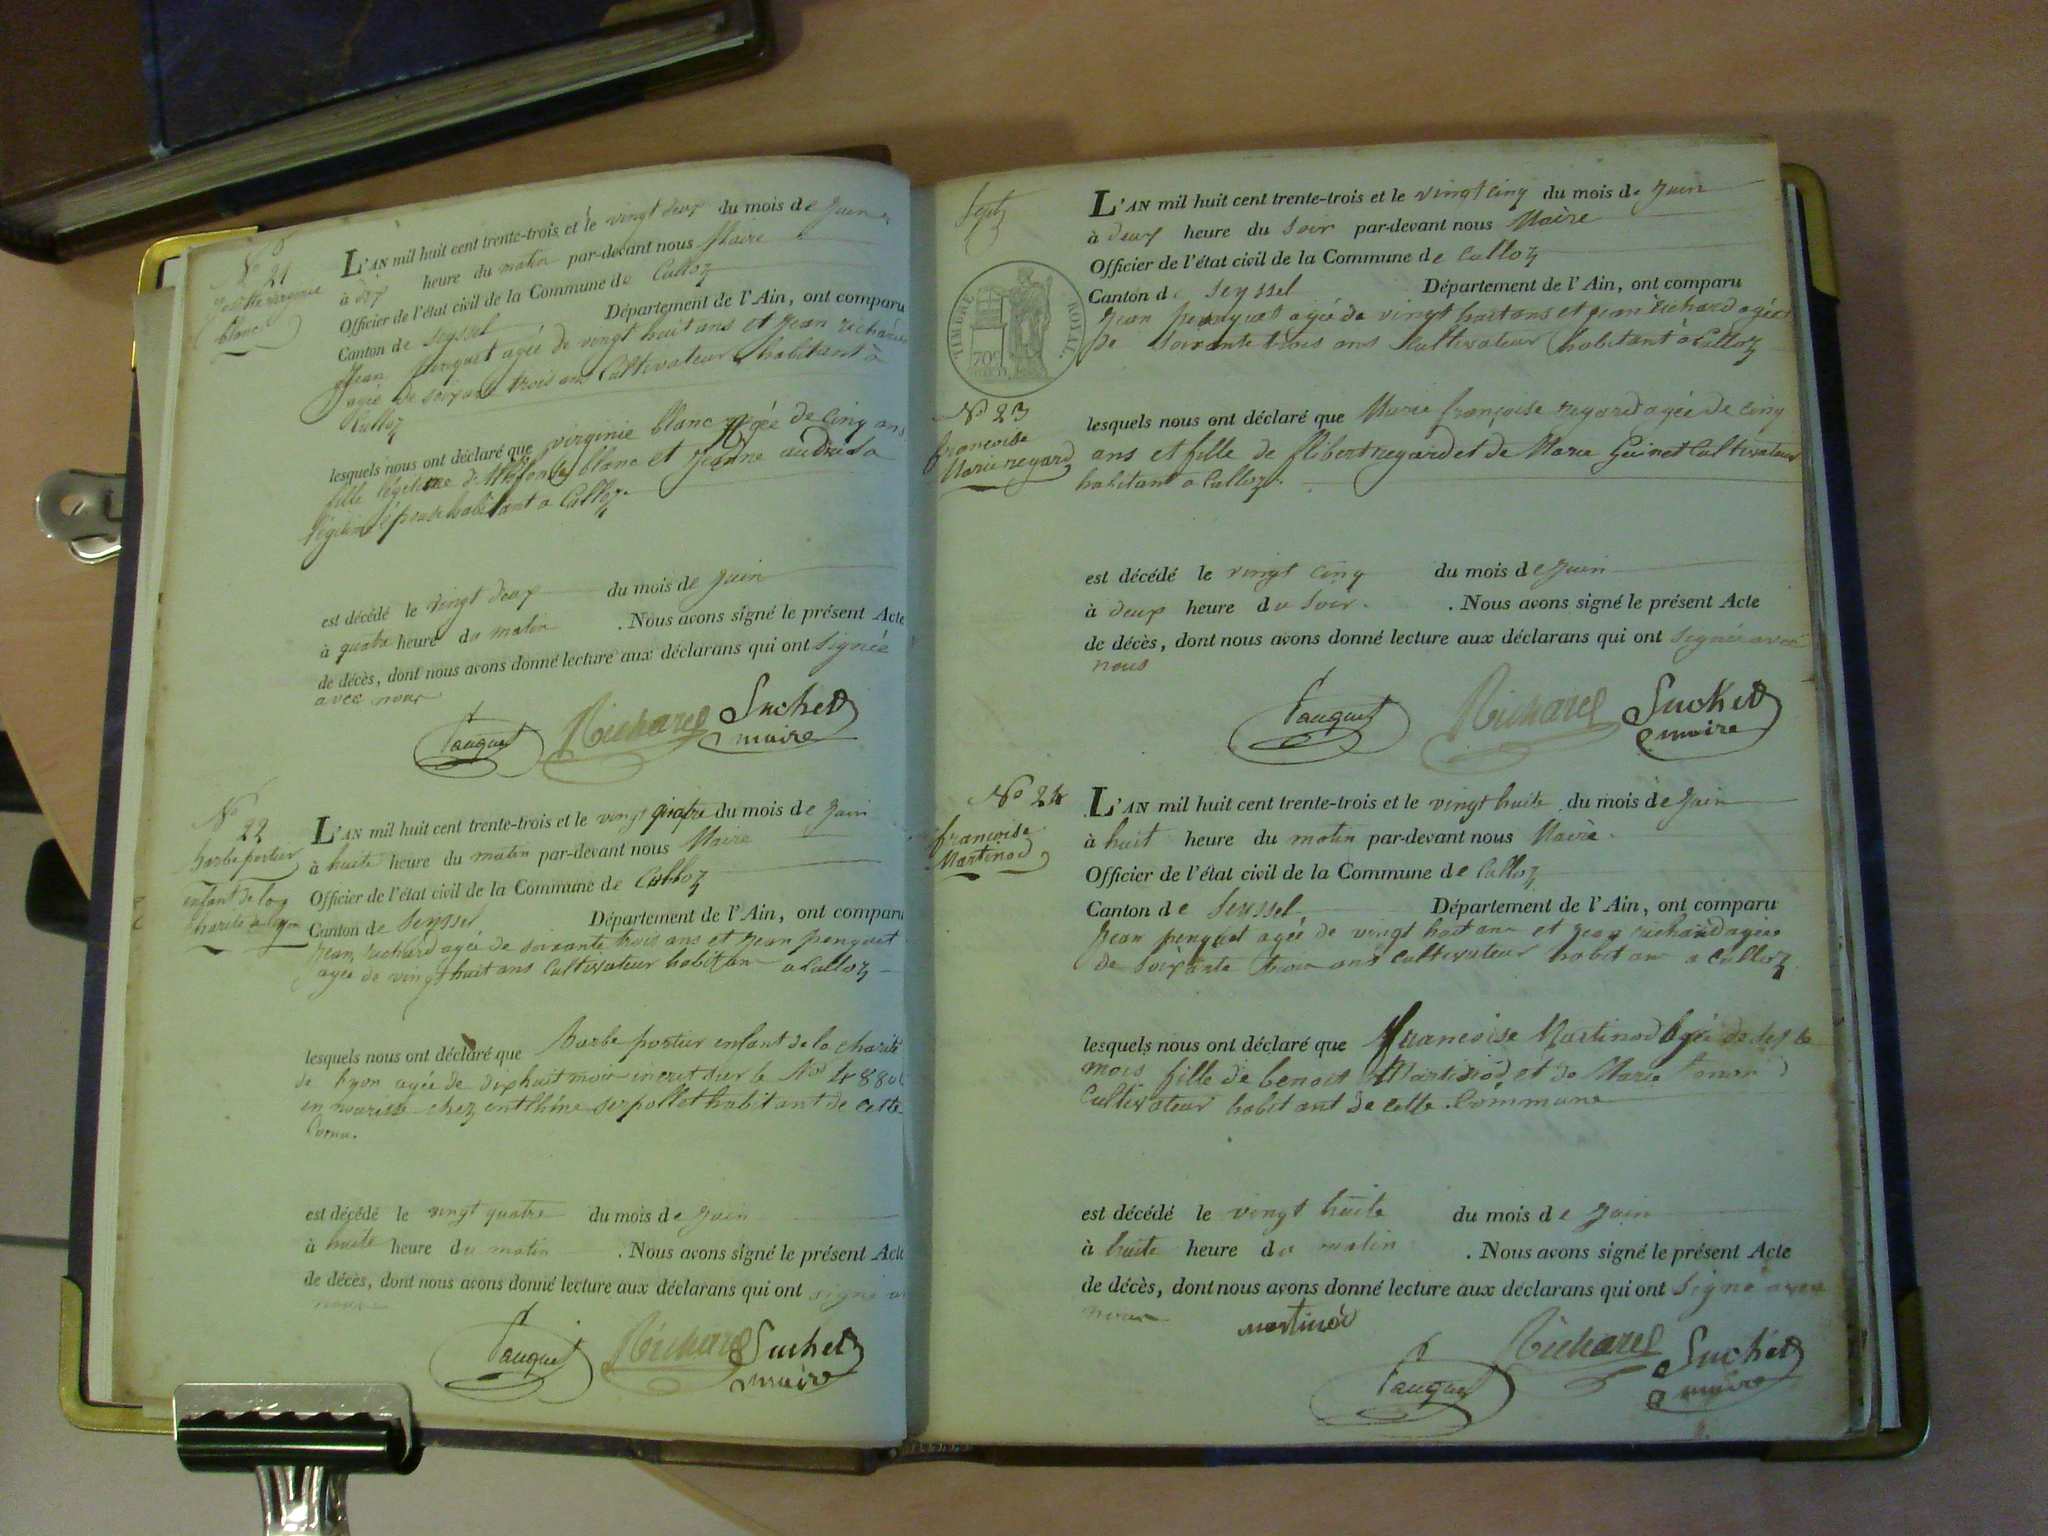 No
21
virginie
blanc
L'AN mil huit cent trente-trois et le vingt deux du mois de Juin
à dix heure du matin par-devant nous Maire
Officier de l'état civil de la Commune de Culloz
Canton de Seyssel Département de l'Ain, ont comparu
Jean agée de vingt huit ans et Jean richard
agée de soixante trois ans Cultivateur habitant à
Culloz
lesquels nous ont déclaré que virginie blanc agée de Cinq ans
fille légitime blanc et Jeanne
légitime épouse habitant a Culloz.
est décédé le vingt deux du mois de Juin
à quatre heure du matin . Nous avons signé le présent Acte
de décès, dont nous avons donné lecture aux déclarans qui ont Signée
avec nous
Pauquet Richard Suchet
maire
No
22
barbe portier
enfant de la
charité de lyon
L'AN mil huit cent trente-trois et le vingt quatre du mois de Juin
à huite heure du matin par-devant nous Maire
Officier de l'état civil de la Commune de Culloz
Canton de Seyssel Département de l'Ain, ont comparu
Jean richard agée de soixante trois ans et Jean penquet
agée de vingt huit ans Cultivateur habitan a Culloz
lesquels nous ont déclaré que Barbe portier enfant de la charité
de lyon agée de dix huit mois incrit sur le No
en nourisse chez serpollet habitant de Cette
Comu.
est décédé le vingt quatre du mois de Juin
à huite heure du matin . Nous avons signé le présent Acte
de décès, dont nous avons donné lecture aux déclarans qui ont signé
nous
Pauquet Richard Suchet
maire
Sept
TIMBRE ROYAL
70c
L'AN mil huit cent trente-trois et le vingt cinq du mois de Juin
à deux heure du Soir par-devant nous Maire
Officier de l'état civil de la Commune de Culloz
Canton de Seyssel Département de l'Ain, ont comparu
Jean penquet agée de vingt huit ans et jean Richard agée
de Soixante trois ans Cultivateur habitant à Culloz
No 23
françoise
Marie regard
lesquels nous ont déclaré que Marie françoise regard agée de cinq
ans et fille de flibert regard et de Marie Guinet Cultivateur
habitant a Culloz.
est décédé le vingt cinq du mois de Juin
à deux heure du Soir. . Nous avons signé le présent Acte
de décès, dont nous avons donné lecture aux déclarans qui ont Signée avec
nous
Pauquet Richard Suchet
maire
No 24
françoise
Martinod
L'AN mil huit cent trente-trois et le vingt huite du mois de Juin
à huit heure du matin par-devant nous Maire.
Officier de l'état civil de la Commune de Culloz
Canton de Seyssel Département de l'Ain, ont comparu
Jean penquet agée de vingt huit ans et jean richard agée
de Soixante trois ans Cultivateur habitan a Culloz
lesquels nous ont déclaré que francoise Martinod agée de
mois fille de benoit Martinod et de Marie
Cultivateur habitant de cette Commune
est décédé le vingt huite du mois de Juin
à huite heure du matin . Nous avons signé le présent Acte
de décès, dont nous avons donné lecture aux déclarans qui ont Signé avec
nous martinod
Pauquet Richard Suchet
maire